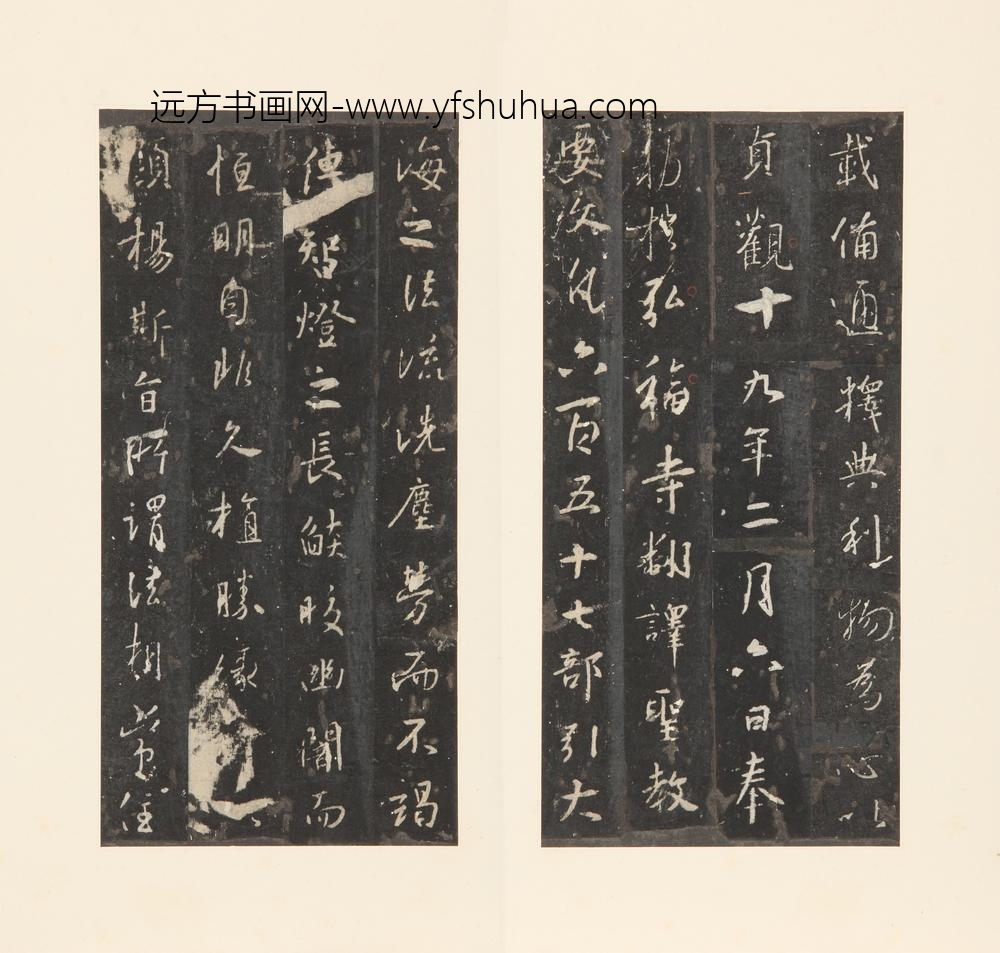 远方书画网-www.yfshuhua.com
載備通釋典利物為心以
貞觀十九年二月六日奉
勑於弘福寺翻譯聖教
要文凡六百五十七部引大
海之法流洗塵勞而不竭
傳智燈之長焰皎幽闇而
恒明自非久植勝緣何以
顯揚斯旨所謂法相常住